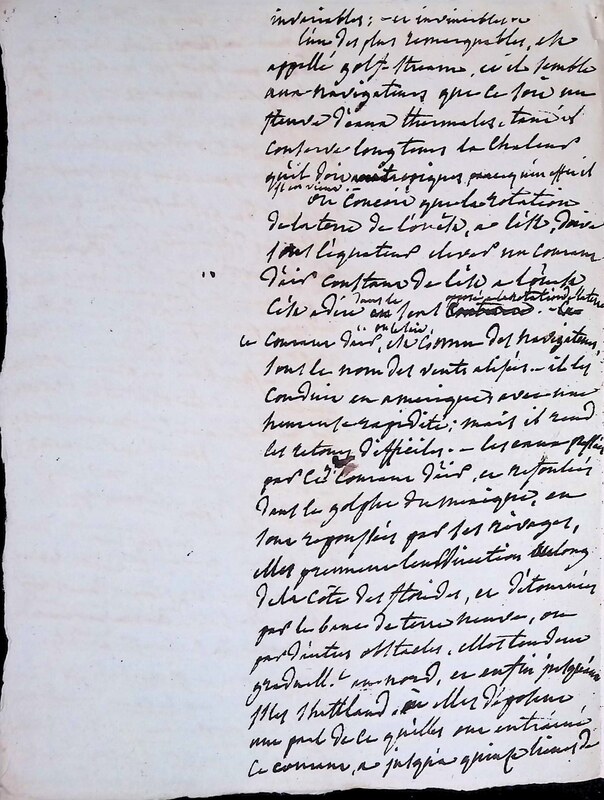 invariables; - et invincibles -
l'un des plus remarquables, est
appellé golf-stream, et il semble
aux navigateurs que ce soit un
fleuve d'eaux thermales, tant il
conserve longtems la chaleur
qu'il doit aux tropiques parcequ'en effet il
en vient.
on conçoit que la rotation
de la terre de l'ouest, a l'est, doive
sous l'équateur elever un courant
d'air constant de l'est a l'ouest
c'est a dire dans le sens opposé a la rotation de la terre
ce courant d'air, est connu des navigateurs,
sous le nom des vents alisés - il les
conduit en amerique avec une
heureuse rapidité; mais il rend
les retours difficiles. - les eaux
par ce courant d'air, et refoulées
dans le golphe du mexique, en
sont repoussées par ses rivages,
elles prennent leur direction le long
de la côte des florides, et détournées
par le banc de terre neuve, ou
par d'autres obstacles, elles tendent
graduell.t au nord, et enfin jusqu'aux
isles shettland. où elles déposent
une part de ce qu'elles ont entrainé
ce courant, a jusqu'a quinze lieues de